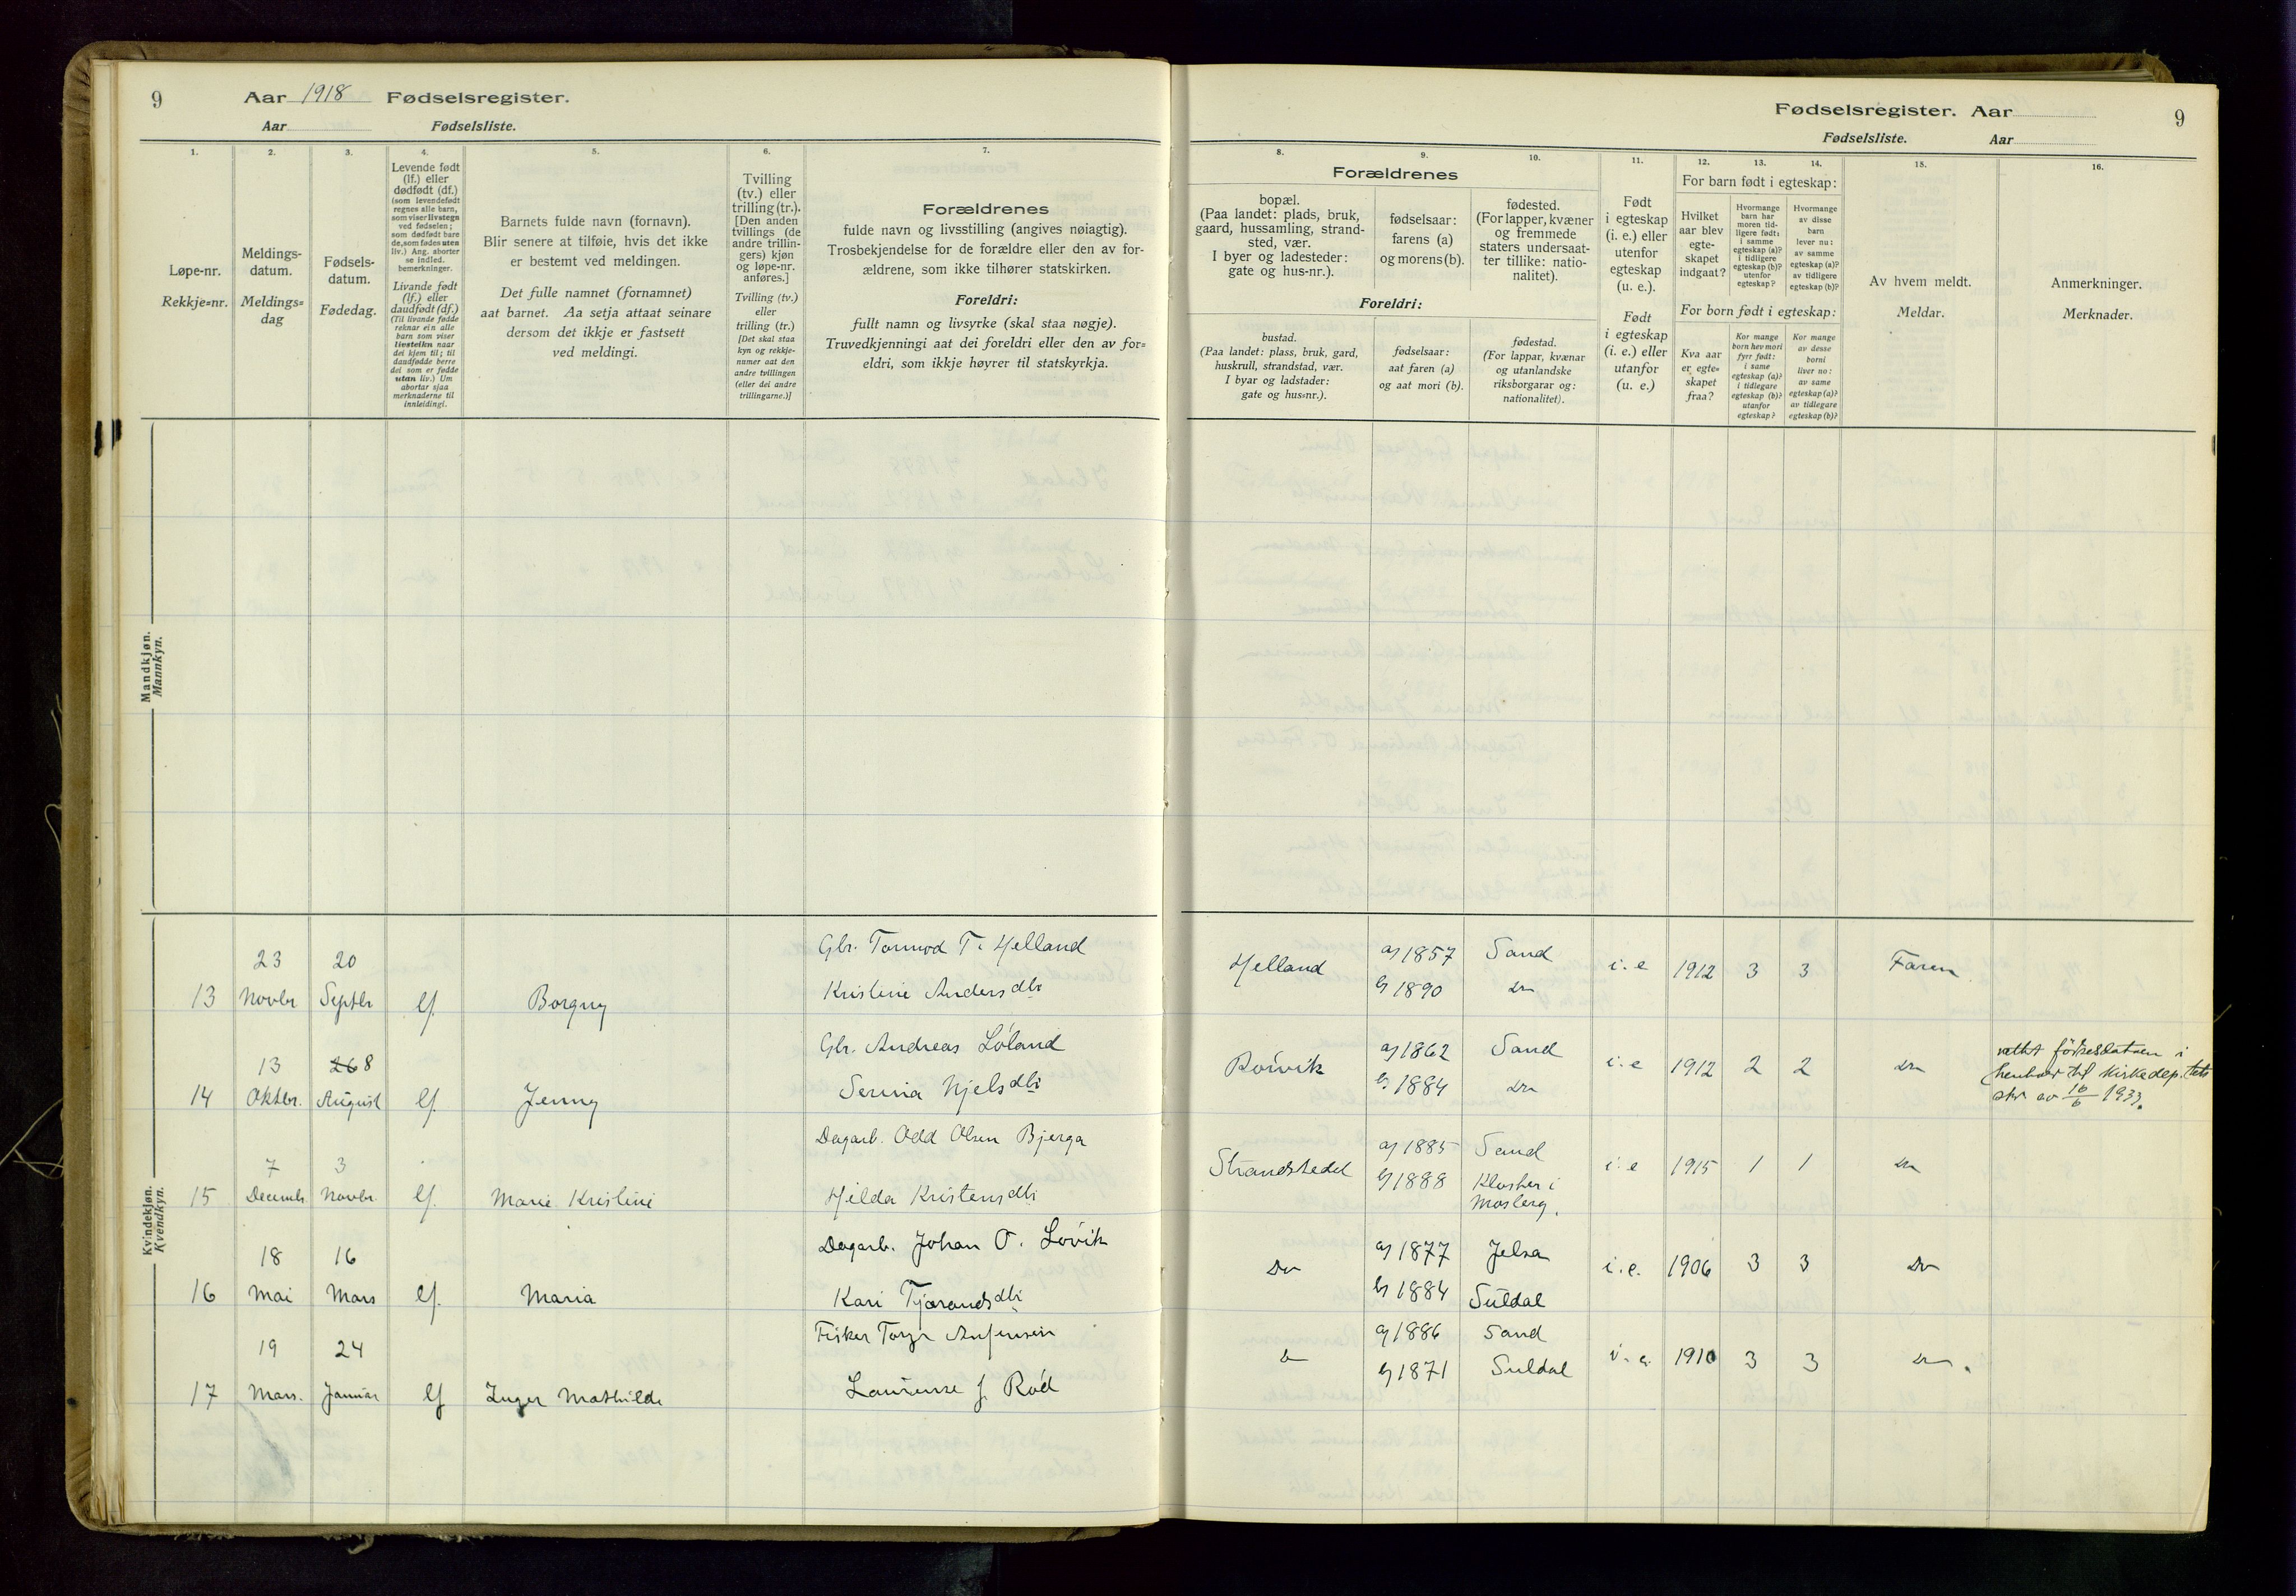 9 Aar 1918 Fødselsregister.
Aar Fødselsliste.
Fødselsregister. Aar 9
Fødselsliste. Aar
1.
Løpe-nr.
Rekkje=nr.
2.
Meldings-
datum.
Meldings=
dag
3.
Fødsels-
datum.
Fødedag.
4.
Levende født
(lf.) eller
dødfødt (df.)
(som levendefødt
regnes alle barn,
som viser livstegn
ved fødselen;
som dødfødt bare
de, som fødes uten
liv.) Ang. aborter
se indled.
bemerkninger.
Livande født
(lf.) eller
daudfødt (df.)
(Til livande fødde
reknar ein alle
barn som viser
livsteikn naar
dei kjem til; til
daudfødde berre
dei som er fødde
utan liv.) Um
abortar sjaa
merknaderne til
innleidingi.
5.
Barnets fulde navn (fornavn).
Blir senere at tilføie, hvis det ikke
er bestemt ved meldingen.
Det fulle namnet (fornamnet)
aat barnet. Aa setja attaat seinare
dersom det ikkje er fastsett
ved meldingi.
6.
Tvilling
(tv.) eller
trilling (tr.).
[Den anden
tvillings (de
andre trillin-
gers) kjøn
og løpe-nr.
anføres.]
Tvilling (tv.)
eller
trilling (tr.)
[Det skal staa
kyn og rekkje-
numer aat den
andre tvillingen
(eller dei andre
trillingarne.)]
7.
Forældrenes
fulde navn og livsstilling (angives nøiagtig).
Trosbekjendelse for de forældre eller den av for-
ældrene, som ikke tilhører statskirken.
Foreldri:
fullt namn og livsyrke (skal staa nøgje).
Truvedkjenningi aat dei foreldri eller den av for=
eldri, som ikkje høyrer til statskyrkja.
Forældrenes
8.
bopæl.
(Paa landet: plads, bruk,
gaard, hussamling, strand-
sted, vær.
I byer og ladesteder:
gate og hus-nr.).
Foreldri:
bustad.
(Paa landet: plass, bruk, gard,
huskrull, strandstad, vær.
I byar og ladstader:
gate og hus=nr.).
9.
fødselsaar:
farens (a)
og morens (b).
fødselsaar:
aat faren (a)
og aat mori (b).
10.
fødested.
(For lapper, kvæner
og fremmede
staters undersaat-
ter tillike: natio-
nalitet).
fødestad.
(For lappar, kvænar
og utanlandske
riksborgarar og:
nationalitet).
11.
Født
i egteskap
(i. e.) eller
utenfor
egteskap
(u. e.).
Født
i egteskap
(i. e.) eller
utanfor
(u. e.)
12. 13. 14.
For barn født i egteskap:
Hvilket
aar blev
egte-
skapet
indgaat?
Hvormange
barn har
moren tid-
ligere født:
i samme
egteskap (a)?
i tidligere
egteskap (b)?
utenfor
egteskap?
Hvormange
av disse
barn
lever nu:
av samme
egteskap (a)?
av tidligere
egteskap (b)?
For born født i egteskap:
Kva aar
er egte=
skapet
fraa?
Kor mange
born hev mori
fyrr født:
i same
egteskap (a)?
i tidlegare
egteskap (b)?
utanfor
egteskap?
Kor mange
av desse
borni
liver no:
av same
egteskap (a)?
av tidlegare
egteskap (b)?
15.
Av hvem meldt.
Meldar.
16.
Anmerkninger.
Merknader.
Mandkjøn.
Mannkyn.
Kvindekjøn.
Kvendkyn.
23 20 Gbr. Tormod T. Helland Helland a) 1857 Sand i. e 1912 3 3 Faren
13 Novbr Septbr lf. Borgny Kristine Andersdtr b) 1890 Do
13 26 8 Gbr. Andreas Løland Rørvik a) 1862 Sand i. e 1912 2 2 Do rettet fødselsdatoen i
henhold til Kirkedep.tets
skr av 16/6 1933.
14 Oktbr. August lf. Jenny Serina Njelsdtr b) 1884 Do
7 3 Dagarb. Odd Olsen Bjerga Strandstedet a) 1885 Sand i. e 1915 1 1 Do
15 Decembr Novbr. lf. Marie Kristine Hilda Kristensdtr b) 1888 Kloster i
Mosterø.
18 16 Dagarb. Johan O. Løvik Do a) 1877 Jelsa i. e. 1906 3 3 Do
16 Mai Mars lf. Maria Kari Tjærandsdtr b) 1884 Suldal
19 24 Fisker Torger Anfensen Do a) 1886 Sand i. e. 1910 3 3 Do.
17 Mars. Januar lf Inger Mathilde Laurense J. Rød b) 1871 Suldal